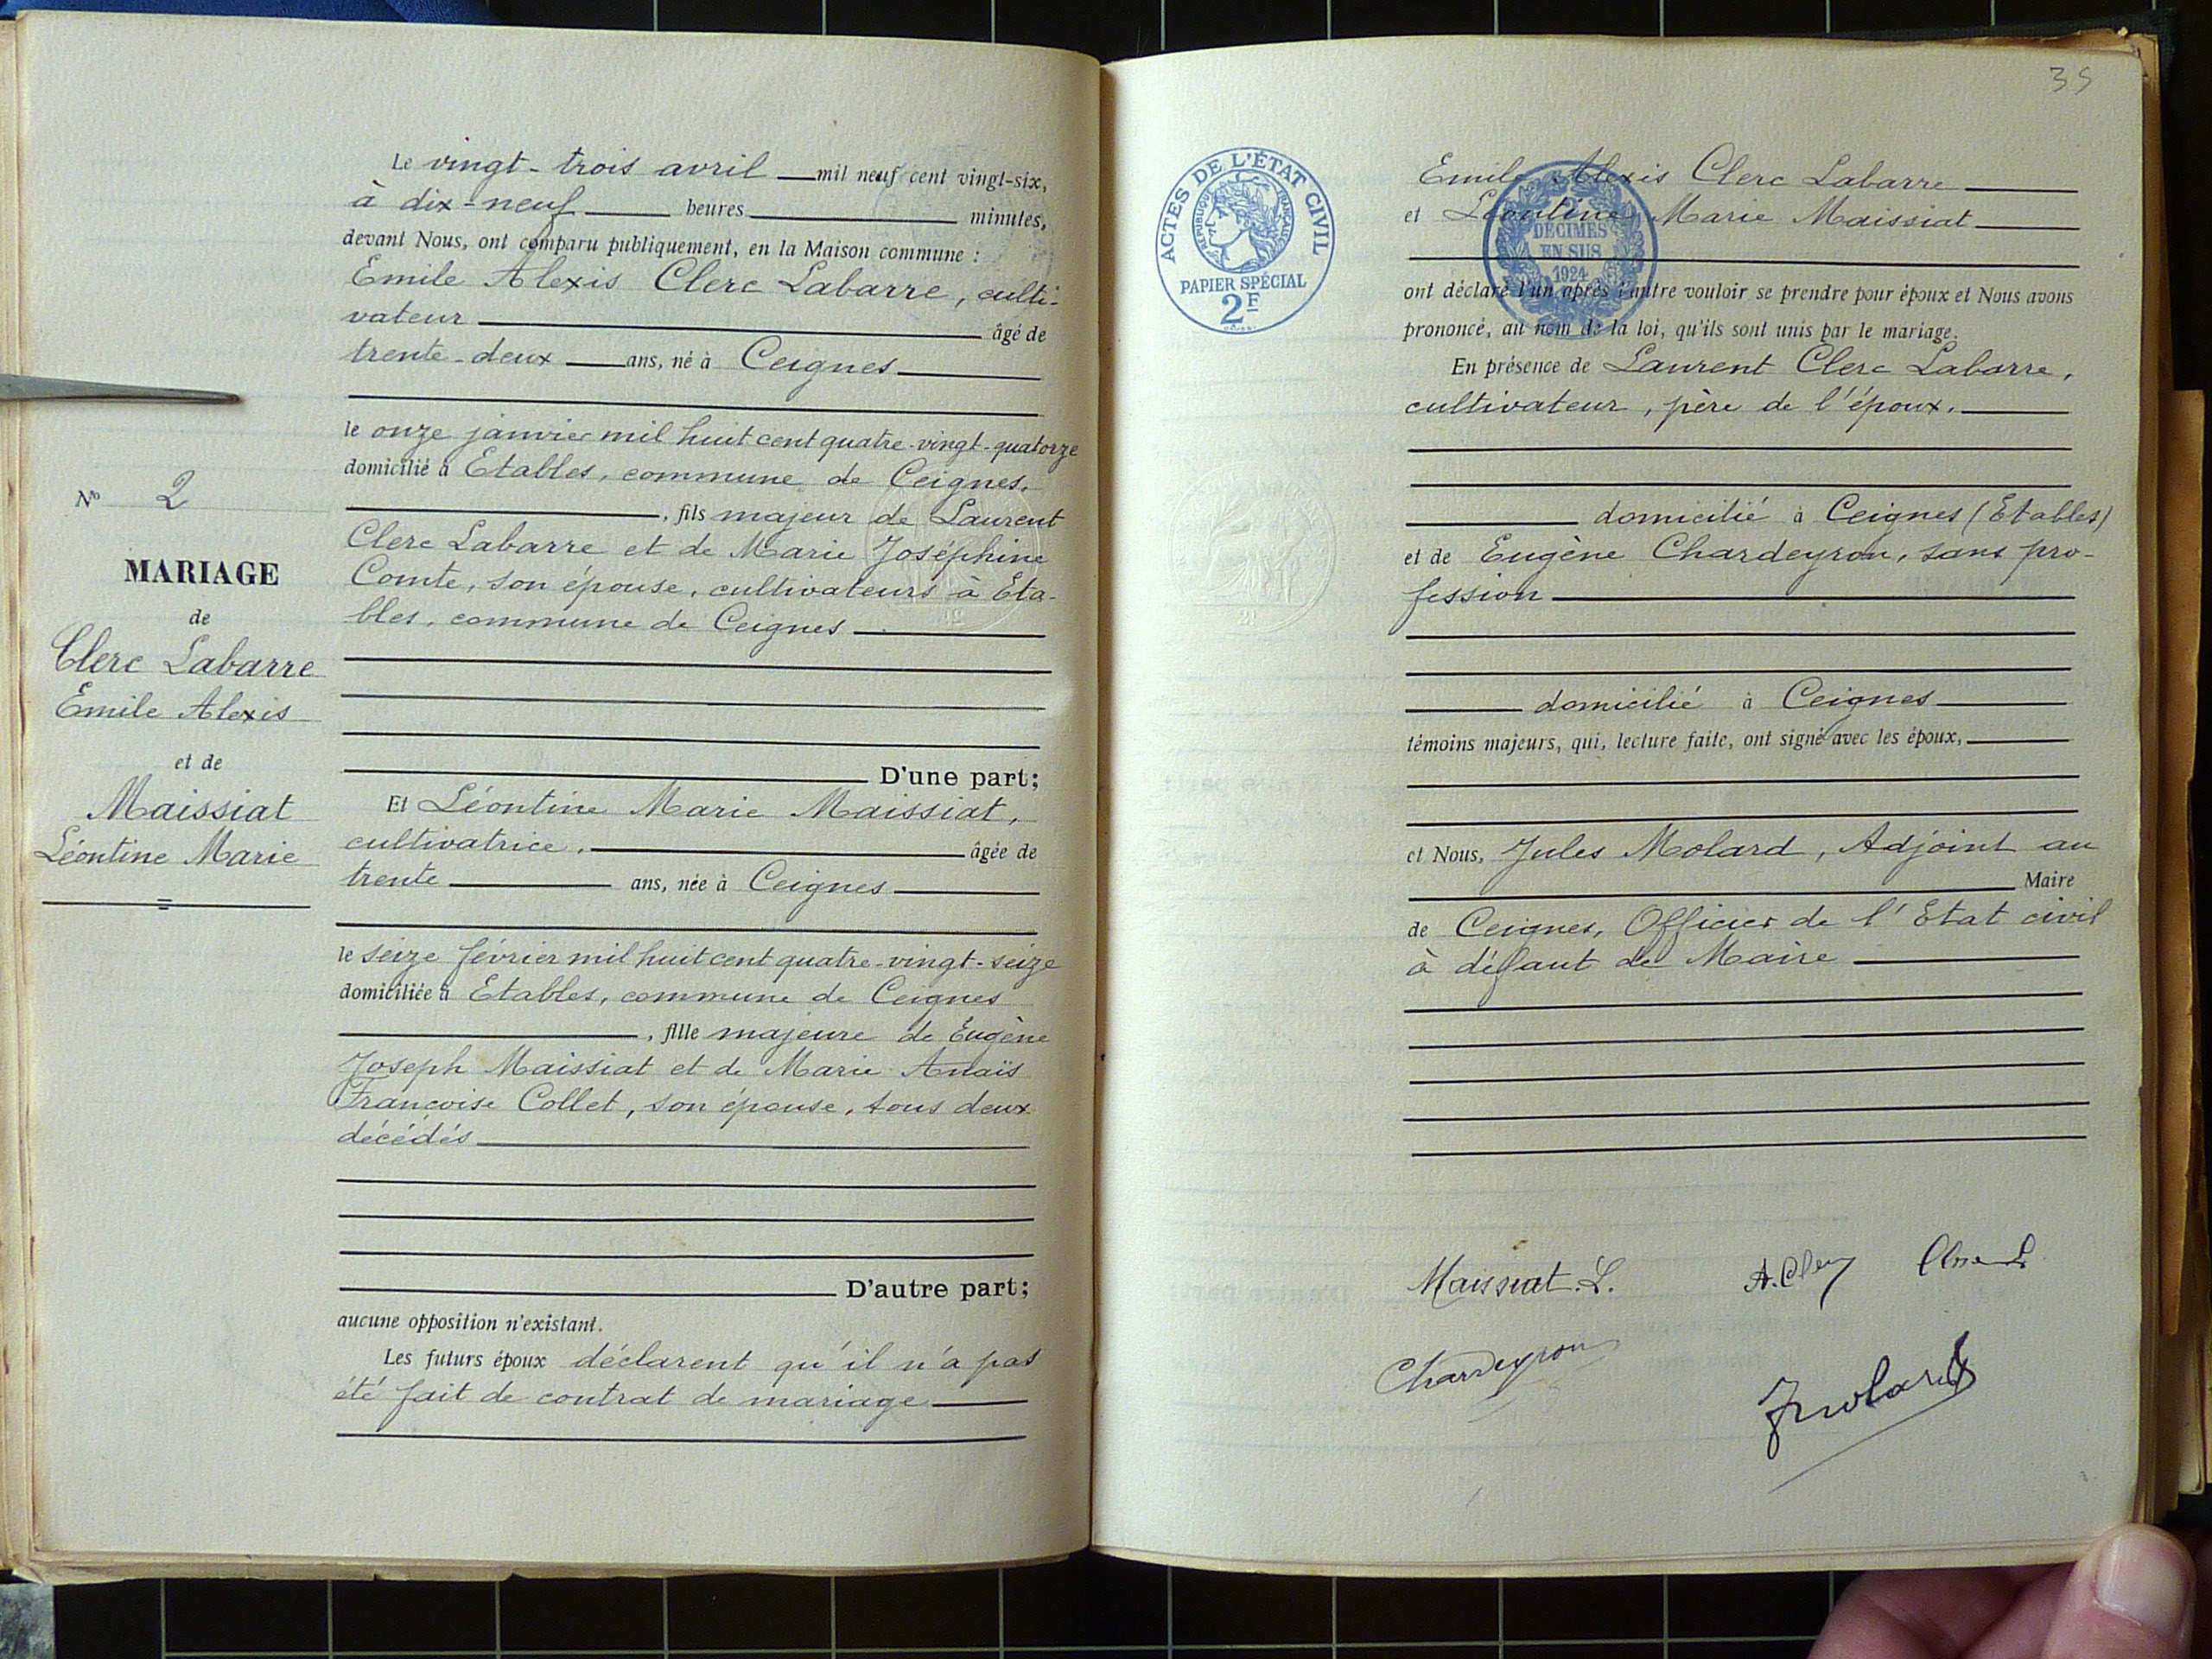 Le vingt-trois avril mil neuf cent vingt-six,
à dix-neuf heures minutes,
devant Nous, ont comparu publiquement, en la Maison commune :
Emile Alexis Clerc Labarre, culti-
vateur âgé de
trente-deux ans, né à Ceignes
le onze janvier mil huit cent quatre-vingt-quatorze
domicilié à Etables, commune de Ceignes,
, fils majeur de Laurent
Clerc Labarre et de Marie Joséphine
Comte, son épouse, cultivateurs à Eta-
bles, commune de Ceignes
D'une part;
Et Léontine Marie Maissiat,
cultivatrice, âgée de
trente ans, née à Ceignes
le seize février mil huit cent quatre-vingt-seize
domiciliée à Etables, commune de Ceignes
, fille majeure de Eugène
Joseph Maissiat et de Marie Anaïs
Françoise Collet, son épouse, tous deux
décédés
D'autre part;
aucune opposition n'existant.
Les futurs époux déclarent qu'il n'a pas
été fait de contrat de mariage
Nº 2
MARIAGE
de
Clerc Labarre
Emile Alexis
et de
Maissiat
Léontine Marie
35
ACTES DE L'ÉTAT CIVIL
RÉPUBLIQUE FRANÇAISE
PAPIER SPÉCIAL
2F
DÉCIMES
EN SUS
1924
Emile Alexis Clerc Labarre
et Léontine Marie Maissiat
ont déclaré l'un après l'autre vouloir se prendre pour époux et Nous avons
prononcé, au nom de la loi, qu'ils sont unis par le mariage.
En présence de Laurent Clerc Labarre,
cultivateur, père de l'époux,
domicilié à Ceignes (Etables)
et de Eugène Chardeyron, sans pro-
fession
domicilié à Ceignes
témoins majeurs, qui, lecture faite, ont signé avec les époux,
et Nous, Jules Molard, Adjoint au
Maire
de Ceignes, Officier de l'Etat civil
à défaut de Maire
Maissiat.L. A.Clerc
Chardeyron
JMolard